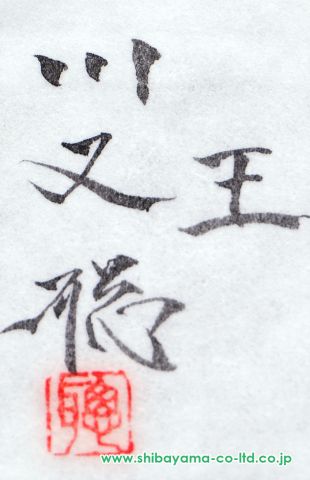 王
川又聡
www.shibayama-co-ltd.co.jp